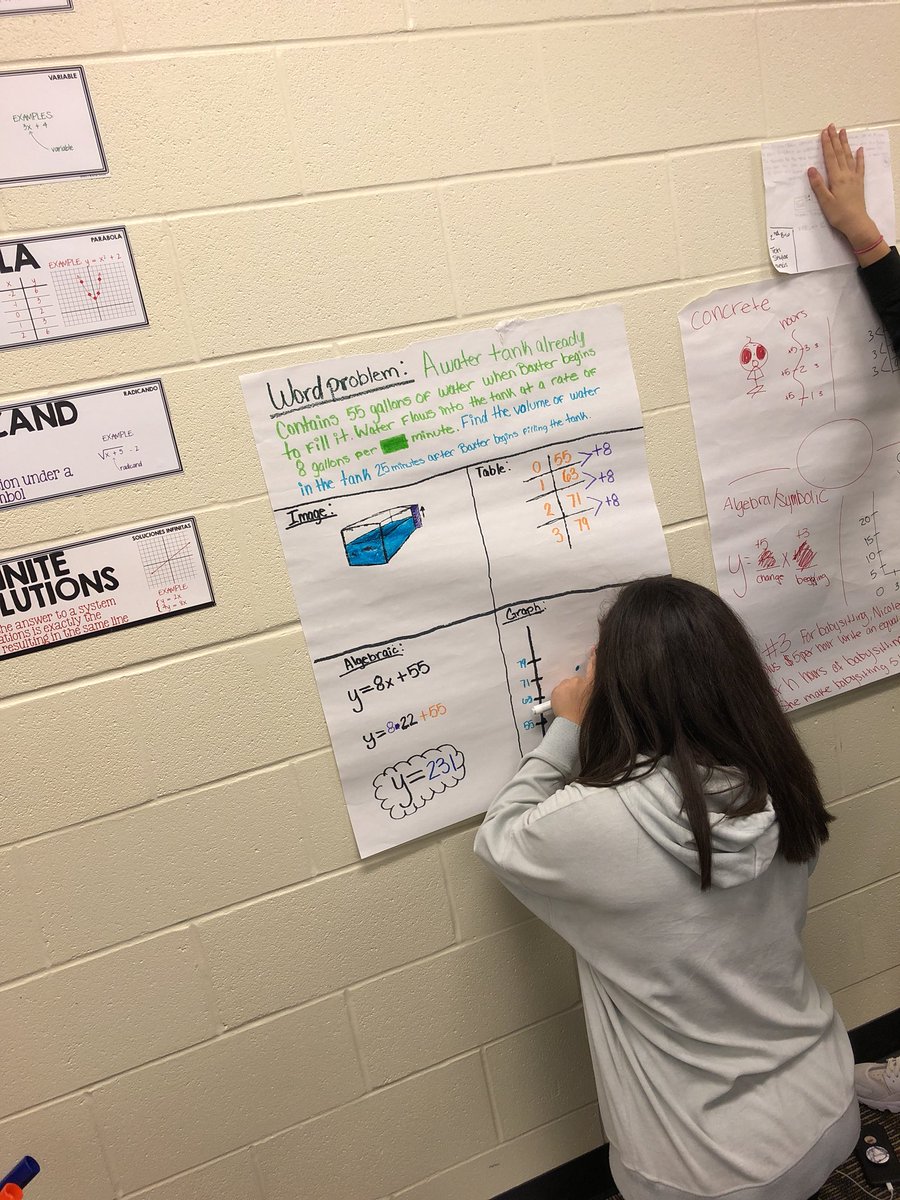 VARIABLE
EXAMPLES
3x + 4
variable
LA
PARABOLA
EXAMPLE y = x² + 2
x y
-2 6
-1 3
0 2
1 3
2 6
CAND
RADICANDO
EXAMPLE
√x + 5 - 2
radicand
ion under a
mbol
INITE
LUTIONS
SOLUCIONES INFINITAS
EXAMPLE
he answer to a system
ations is exactly the
resulting in the same line
Word problem: A water tank already
contains 55 gallons of water when Baxter begins
to fill it. Water flows into the tank at a rate of
8 gallons per minute. Find the volume of water
in the tank 25 minutes after Baxter begins filling the tank.
Image:
Table:
0 55
1 63
2 71
3 79
+8
+8
+8
Algebraic:
y=8x+55
y=8•22+55
y=231
Graph:
79
71
63
55
Concrete
hours
+5 3 3
+5 2 3
+5 1 3
3
3
3
Algebra/Symbolic
y= +5 x +3
change begging
20
15
10
5
0 3
#3 For babysitting, Nicole
$5 per hour. Write an equa
h hours of babysittin
she make babysitting 5